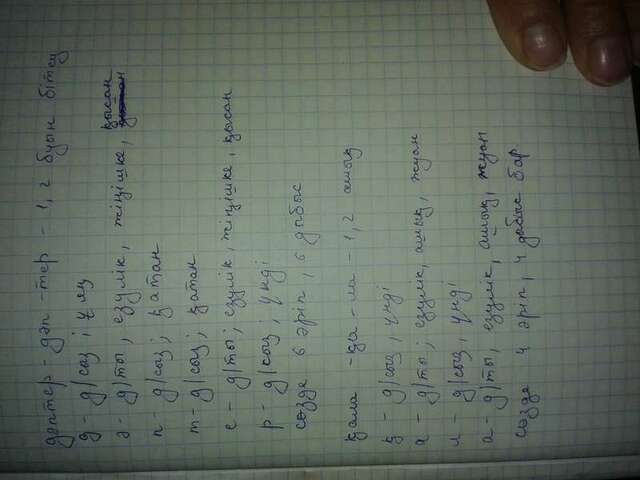 дәптер - дәп - тер - 1, 2 буын бітеу
д - д/сыз ; ұяң
ә - д/ты, езулік, жіңішке, қысаң
п - д/сыз ; қатаң
т - д/сыз ; қатаң
е - д/ты ; езулік, жіңішке, қысаң
р - д/сыз, үнді
сөзде 6 әріп, 6 дыбыс
қала - қа - ла - 1, 2 ашық
қ - д/сыз, үнді
а - д/ты ; езулік, ашық, жуан
л - д/сыз, үнді
а - д/ты, езулік, ашық, жуан
сөзде 4 әріп, 4 дыбыс бар